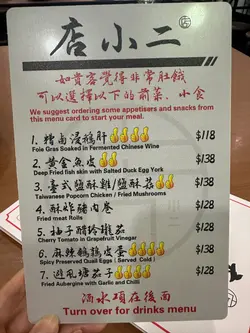 店小二
如貴客覺得非常肚餓
可以選擇以下的前菜、小食
We suggest ordering some appetisers and snacks from
this menu card to start your meal.
1. 糟鹵浸鵝肝 $118
Foie Gras Soaked in Fermented Chinese Wine
2. 黃金魚皮 $38
Deep Fried fish skin with Salted Duck Egg York
3. 臺式鹽酥雞/鹽酥菇 $138
Taiwanese Popcorn Chicken / Fried Mushrooms
4. 酥炸腿肉卷 $28
Fried meat Rolls
5. 柚子醋拎櫃茄 $128
Cherry Tomato in Grapefruit Vinegar
6. 麻辣鵪鶉皮蛋 $138
Spicy Preserved Quail Eggs ( Served Cold )
7. 避風塘茄子 $128
Fried Aubergine with Garlic and Chili
酒水項在後面
Turn over for drinks menu